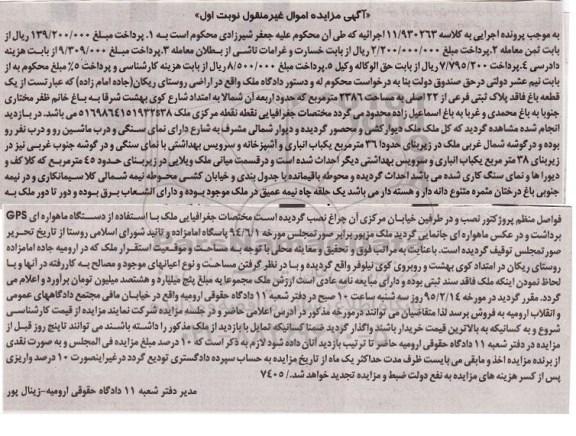 «آگهی مزایده اموال غیرمنقول نوبت اول»
به موجب پرونده اجرایی به کلاسه ۱۱/۹۳۰۲۶۳ اجرائیه که طی آن محکوم علیه جعفر شیرزادی محکوم است به ۱. پرداخت مبلغ ۱۳۹/۲۰۰/۰۰۰ ریال از
بابت ثمن معامله ۲. پرداخت مبلغ ۲/۲۰۰/۰۰۰/۰۰۰ ریال از بابت خسارت و غرامات ناشی از بطلان معامله ۳. پرداخت مبلغ ۹/۳۰۹/۰۰۰ از بابت هزینه
دادرسی ۴. پرداخت ۷/۷۹۵/۲۰۰ ریال از بابت حق الوکاله وکیل ۵. پرداخت مبلغ ۸/۵۰۰/۰۰۰ ریال از بابت هزینه کارشناسی و پرداخت ۵٪ مبلغ محکوم به از
بابت نیم عشر دولتی در حق صندوق دولت بنا به درخواست محکوم له و دستور دادگاه ملک واقع در اراضی روستای ریکان (جاده امام زاده) که عبارت است از یک
قطعه باغ فاقد پلاک ثبتی فرعی از ۲۳ اصلی به مساحت ۳۳۸۶ مترمربع که حدود اربعه آن شمالا به امتداد شارع کوی بهشت شرقا به باغ خانم ظفر مختاری
جنوبا به باغ محمدی و غربا به باغ اسماعیل زاده محدود می گردد مختصات جغرافیایی نقطه نقطه مرکزی ملک می باشد. در بازدید
انجام شده مشاهده گردید که کل ملک ملک دیوارکشی و محصور گردیده و دیوار شمالی مشرف به شارع دارای نمای سنگی و درب ماشین رو و درب نفر رو
بوده و در گوشه شمال غربی ملک در زیربنای حدودا ۳۶ مترمربع یکباب انباری و آشپزخانه و سرویس بهداشتی با نمای سنگی و در گوشه جنوب غربی نیز در
زیربنای ۳۸ متر مربع یکباب انباری و سرویس بهداشتی دیگر احداث شده است و در قسمت میانی ملک ویلایی در زیربنای حدود ۴۵ مترمربع که کلا کف و
دیورا ها و نمای سنگ کاری شده می باشد احداث گردیده و محوطه باقیمانده با جدول بندی و خیابان کشی محوطه نیمه شمالی کلا سیمانکاری و در نیمه
جنوبی باغ درختان مثمره متنوع دانه دار و هسته دار می باشد یک حلقه چاه نیمه عمیق در ملک موجود بوده و دارای انشعاب برق بوده و دور تا دور ملک به
فواصل منظم پروژکتور نصب و در طرفین خیابان مرکزی آن چراغ نصب گردیده است مختصات جغرافیایی ملک با استفاده از دستگاه ماهواره ای GPS
برداشت و در عکس ماهواره ای جانمایی گردید ملک مزبور برابر صورتمجلس مورخه ۹۴/۶/۱ پاسگاه امامزاده و تائید شورای اسلامی روستا از تاریخ تحریر
صورتمجلس توقیف گردیده است. باعنایت به مراتب فوق و تحقیق و معاینه محلی با توجه به مساحت و موقعیت استقرار ملک که در ارومیه جاده امامزاده
روستای ریکان در امتداد کوی بهشت و روبروی کوی نیلوفر واقع گردیده و با در نظر گرفتن مساحت و نوع اعیانهای موجود و مصالح به کاررفته در آنها و با
لحاظ نمودن اینکه ملک فاقد سند ثبتی بوده و دارای مبایعه نامه عادی است ارزش ملک مجموعا به مبلغ پنج میلیارد و هشتصد میلیون تومان برآورد و اعلام می
گردد. مقرر گردید در مورخه ۹۵/۲/۱۴ روز سه شنبه ساعت ۱۰ صبح در دفتر شعبه ۱۱ دادگاه حقوقی ارومیه واقع در خیابان مافی مجتمع دادگاههای عمومی
و انقلاب ارومیه به فروش برسد لذا متقاضیان می توانند درمورخه مذکور در آدرس اعلامی حاضر و در جلسه مزایده شرکت نمایند مزایده از قیمت کارشناسی
شروع و به کسانیکه به بالاترین قیمت خریدار باشند واگذار گردید ضمنا کسانیکه تمایل با بازدید از ملک مذکور را داشته باشند می توانند تاپنج روز قبل از
مزایده در دفتر شعبه ۱۱ دادگاه حقوقی ارومیه حاضر تا ترتیب بازدید آنان داده شود لازم به ذکر است که ۱۰ درصد مبلغ مزایده فی المجلس و به صورت نقدی
از برنده مزایده اخذ و مابقی می بایست ظرف مدت حداکثر یک ماه از تاریخ مزایده به حساب سپرده دادگستری تودیع گردد در غیراینصورت ۱۰ درصد واریزی
پس از کسر هزینه های مزایده به نفع دولت ضبط و مزایده تجدید خواهد شد./ ۷۴۰۵
مدیر دفتر شعبه ۱۱ دادگاه حقوقی ارومیه-زینال پور